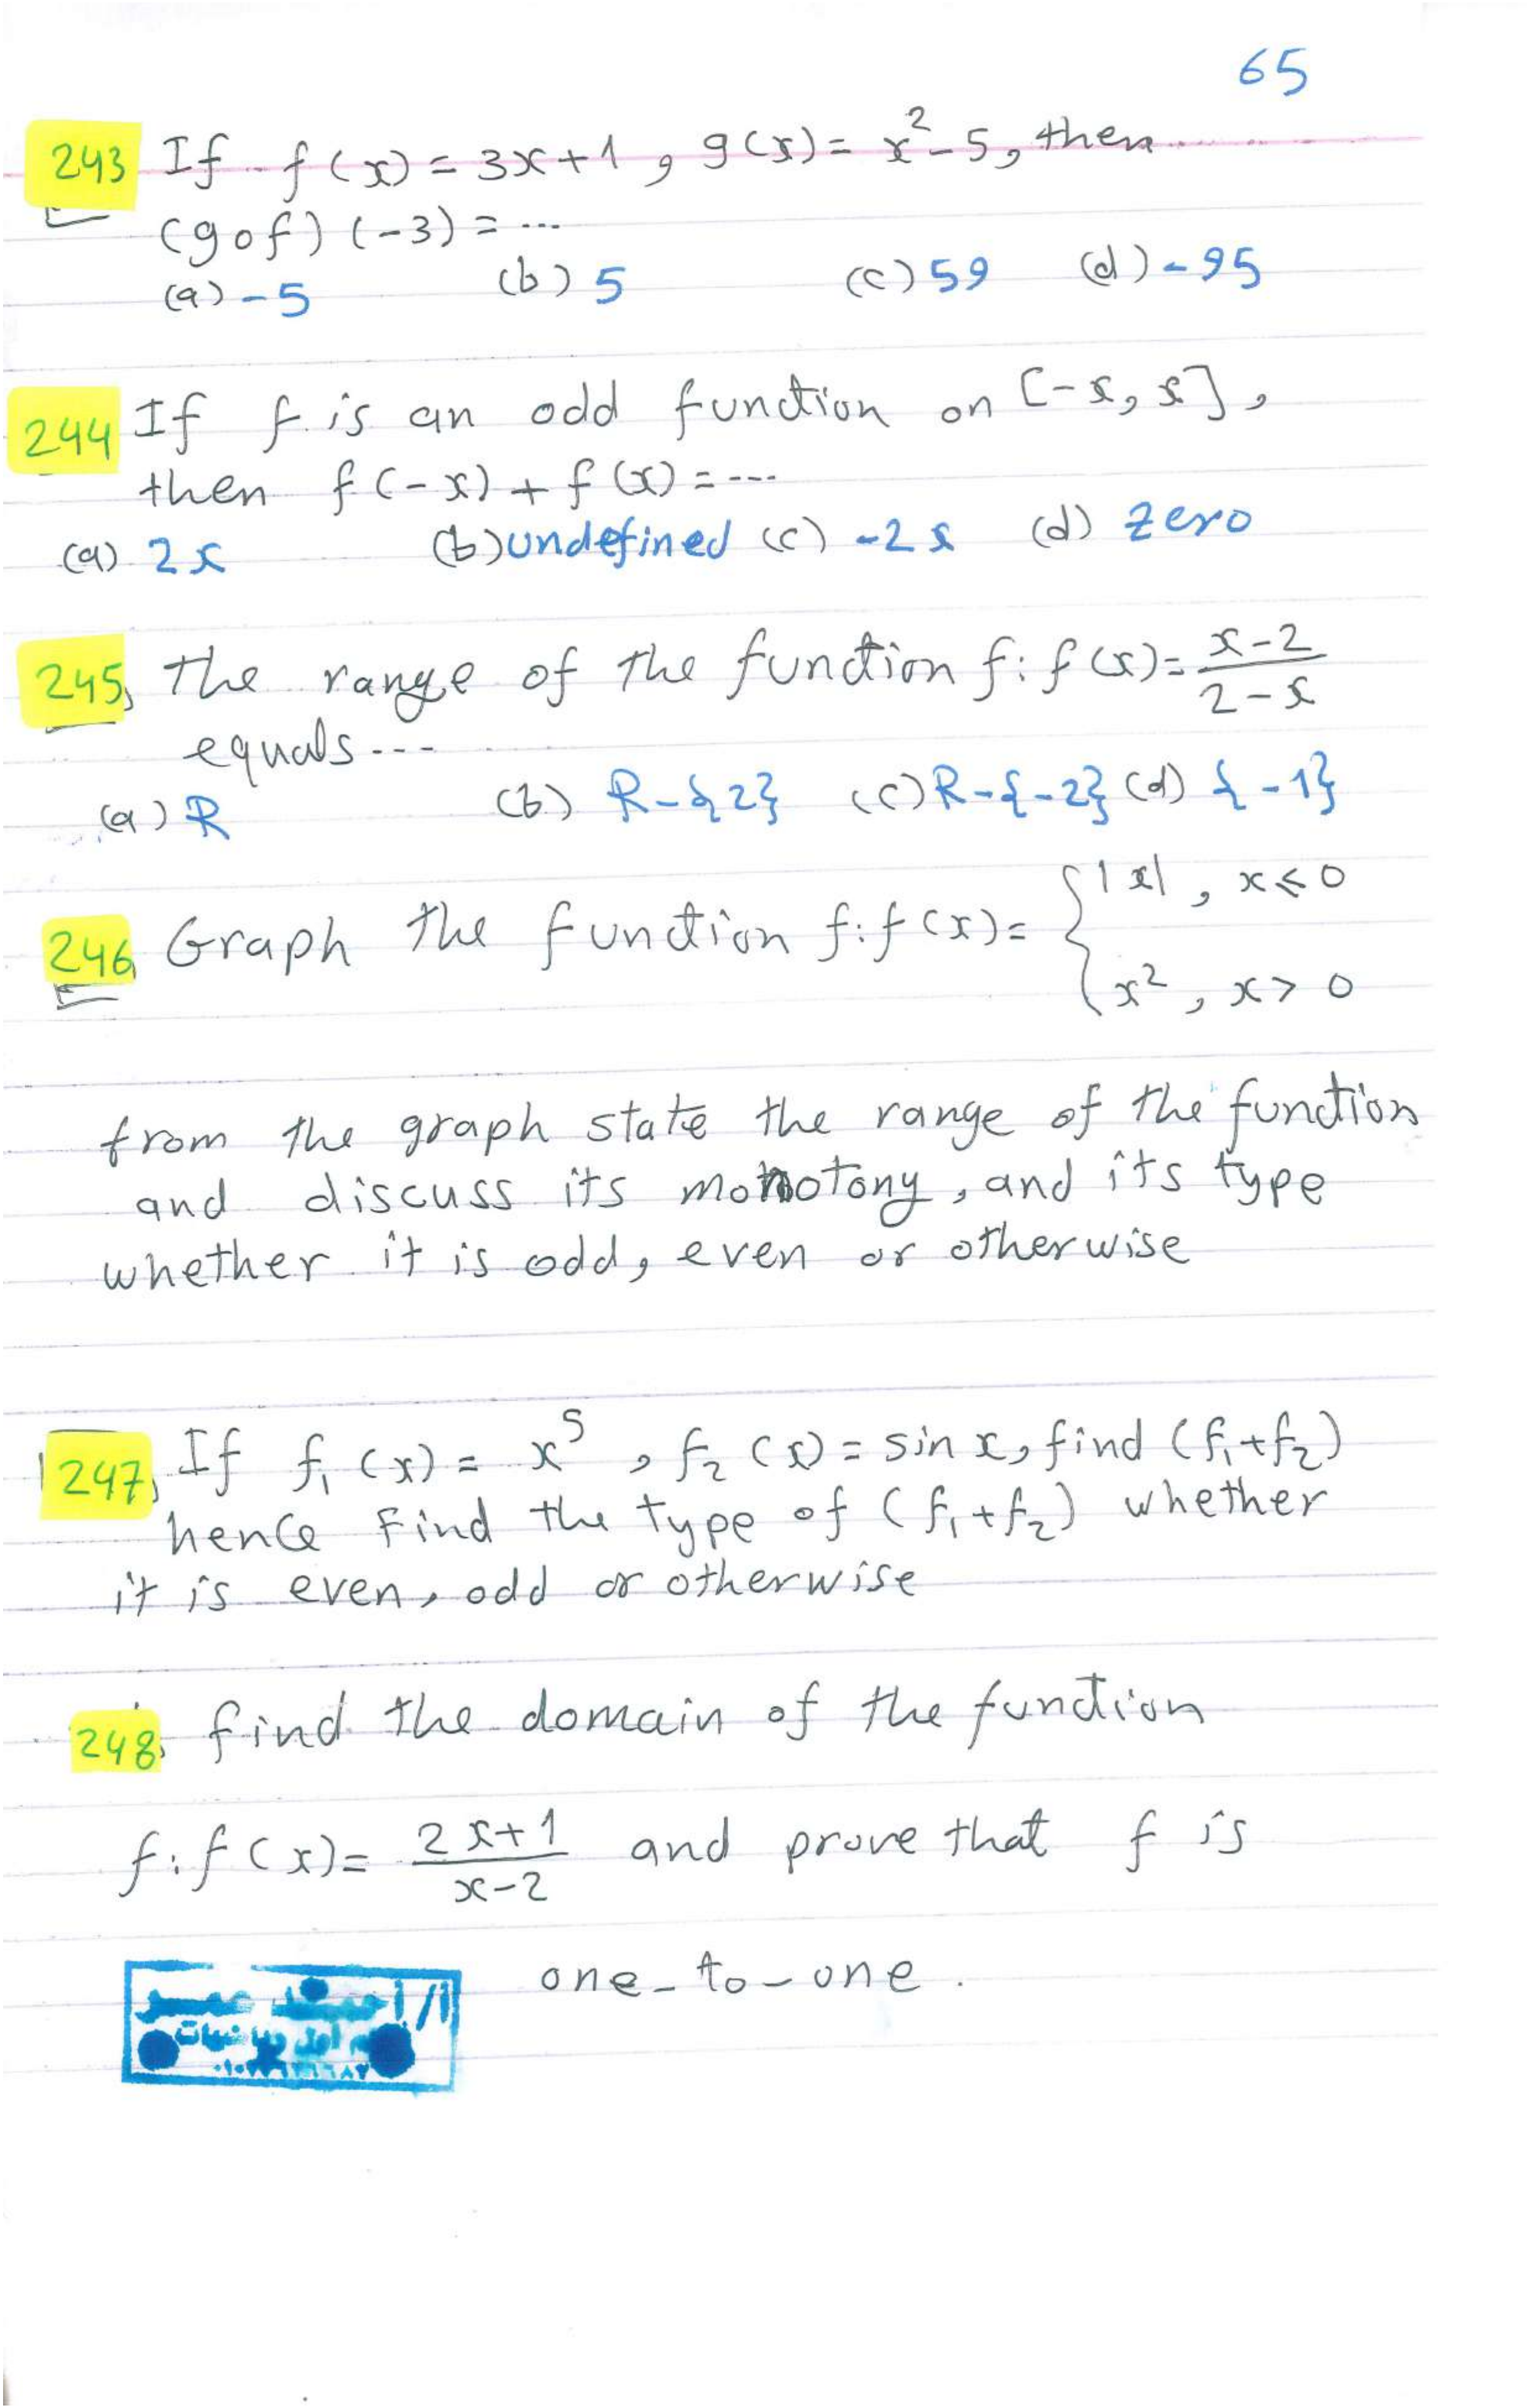 65
243 If f(x) = 3x+1 , g(x) = x²-5, then
(gof)(-3) = ...
(a) -5 (b) 5 (c) 59 (d) -95
244 If f is an odd function on [-x, x],
then f(-x) + f(x) = ---
(a) 2x (b) undefined (c) -2x (d) zero
245, The range of the function f: f(x) = \frac{x-2}{2-x}
equals ---
(a) R (b) R-{2} (c) R-{-2} (d) {-1}
246 Graph the function f: f(x) = { |x| , x ≤ 0
x² , x > 0
from the graph state the range of the function
and discuss its monotony, and its type
whether it is odd, even or otherwise
247, If f₁(x) = x⁵ , f₂(x) = sin x, find (f₁+f₂)
hence Find the type of (f₁+f₂) whether
it is even, odd or otherwise
248, find the domain of the function
f: f(x) = \frac{2x+1}{x-2} and prove that f is
one-to-one.